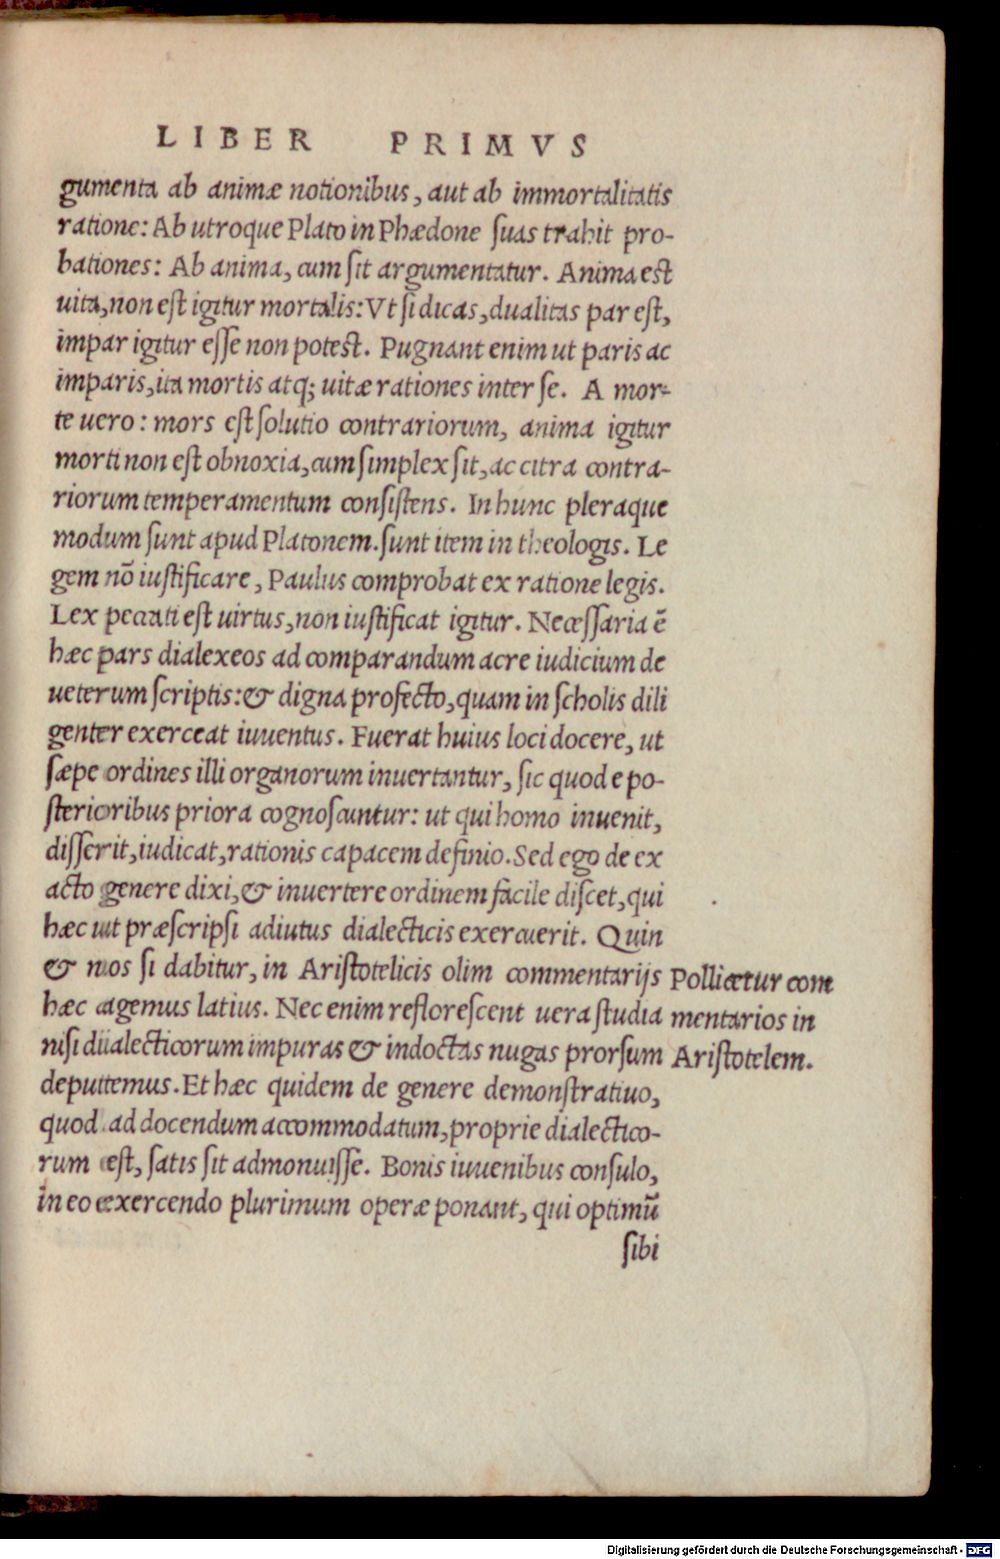 LIBER PRIMVS
gumenta ab animæ notionibus, aut ab immortalitatis
ratione: Ab utroque Plato in Phædone ſuas trahit pro-
bationes: Ab anima, cum ſit argumentatur. Anima eſt
uita, non eſt igitur mortalis: Vt ſi dicas, dualitas par eſt,
impar igitur eſſe non poteſt. Pugnant enim ut paris ac
imparis, ita mortis atq; uitæ rationes inter ſe. A mor-
te uero: mors eſt ſolutio contrariorum, anima igitur
morti non eſt obnoxia, cum ſimplex ſit, ac citra contra-
riorum temperamentum conſiſtens. In hunc pleraque
modum ſunt apud Platonem. ſunt item in theologis. Le
gem nō iuſtificare, Paulus comprobat ex ratione legis.
Lex peccati eſt uirtus, non iuſtificat igitur. Neceſſaria ē
hæc pars dialexeos ad comparandum acre iudicium de
ueterum ſcriptis: & digna profecto, quam in ſcholis dili
genter exerceat iuuentus. Fuerat huius loci docere, ut
ſæpe ordines illi organorum inuertantur, ſic quod e po-
ſterioribus priora cognoſcuntur: ut qui homo inuenit,
diſſerit, iudicat, rationis capacem definio. Sed ego de ex
acto genere dixi, & inuertere ordinem facile diſcet, qui
hæc ut præſcripſi adiutus dialecticis exercuerit. Quin
& nos ſi dabitur, in Ariſtotelicis olim commentarijs
hæc agemus latius. Nec enim refloreſcent uera ſtudia
niſi dialecticorum impuras & indoctas nugas prorſum
deputemus. Et hæc quidem de genere demonſtratiuo,
quod ad docendum accommodatum, proprie dialectico-
rum eſt, ſatis ſit admonuiſſe. Bonis iuuenibus conſulo,
in eo exercendo plurimum operæ ponant, qui optimū
ſibi
Pollicetur com
mentarios in
Ariſtotelem.
Digitalisierung gefördert durch die Deutsche Forschungsgemeinschaft - DFG